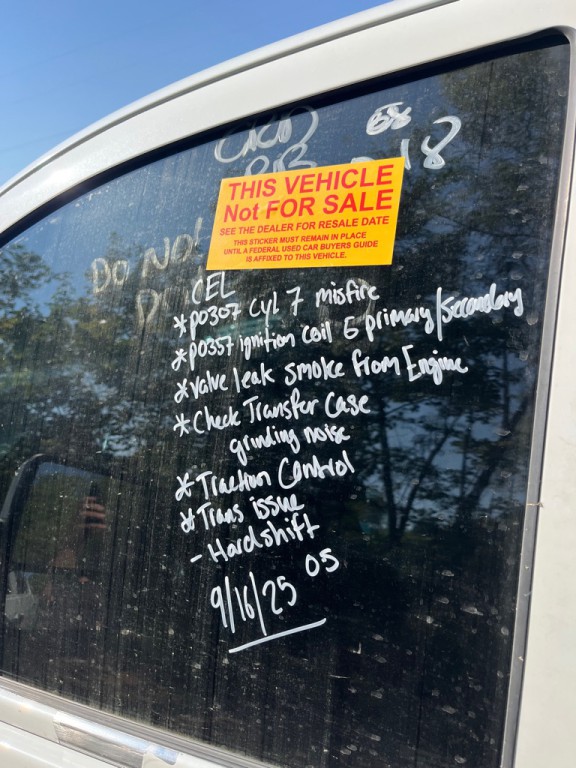 68
18
THIS VEHICLE
Not FOR SALE
SEE THE DEALER FOR RESALE DATE
THIS STICKER MUST REMAIN IN PLACE
UNTIL A FEDERAL USED CAR BUYERS GUIDE
IS AFFIXED TO THIS VEHICLE.
DO NO
CEL
*P0307 Cyl 7 misfire
*P0357 ignition coil G primary/secondary
*valve leak smoke from Engine
*Check Transfer Case
grinding noise
*Traction Control
*Trans issue
-Hardshift
9/16/25 05